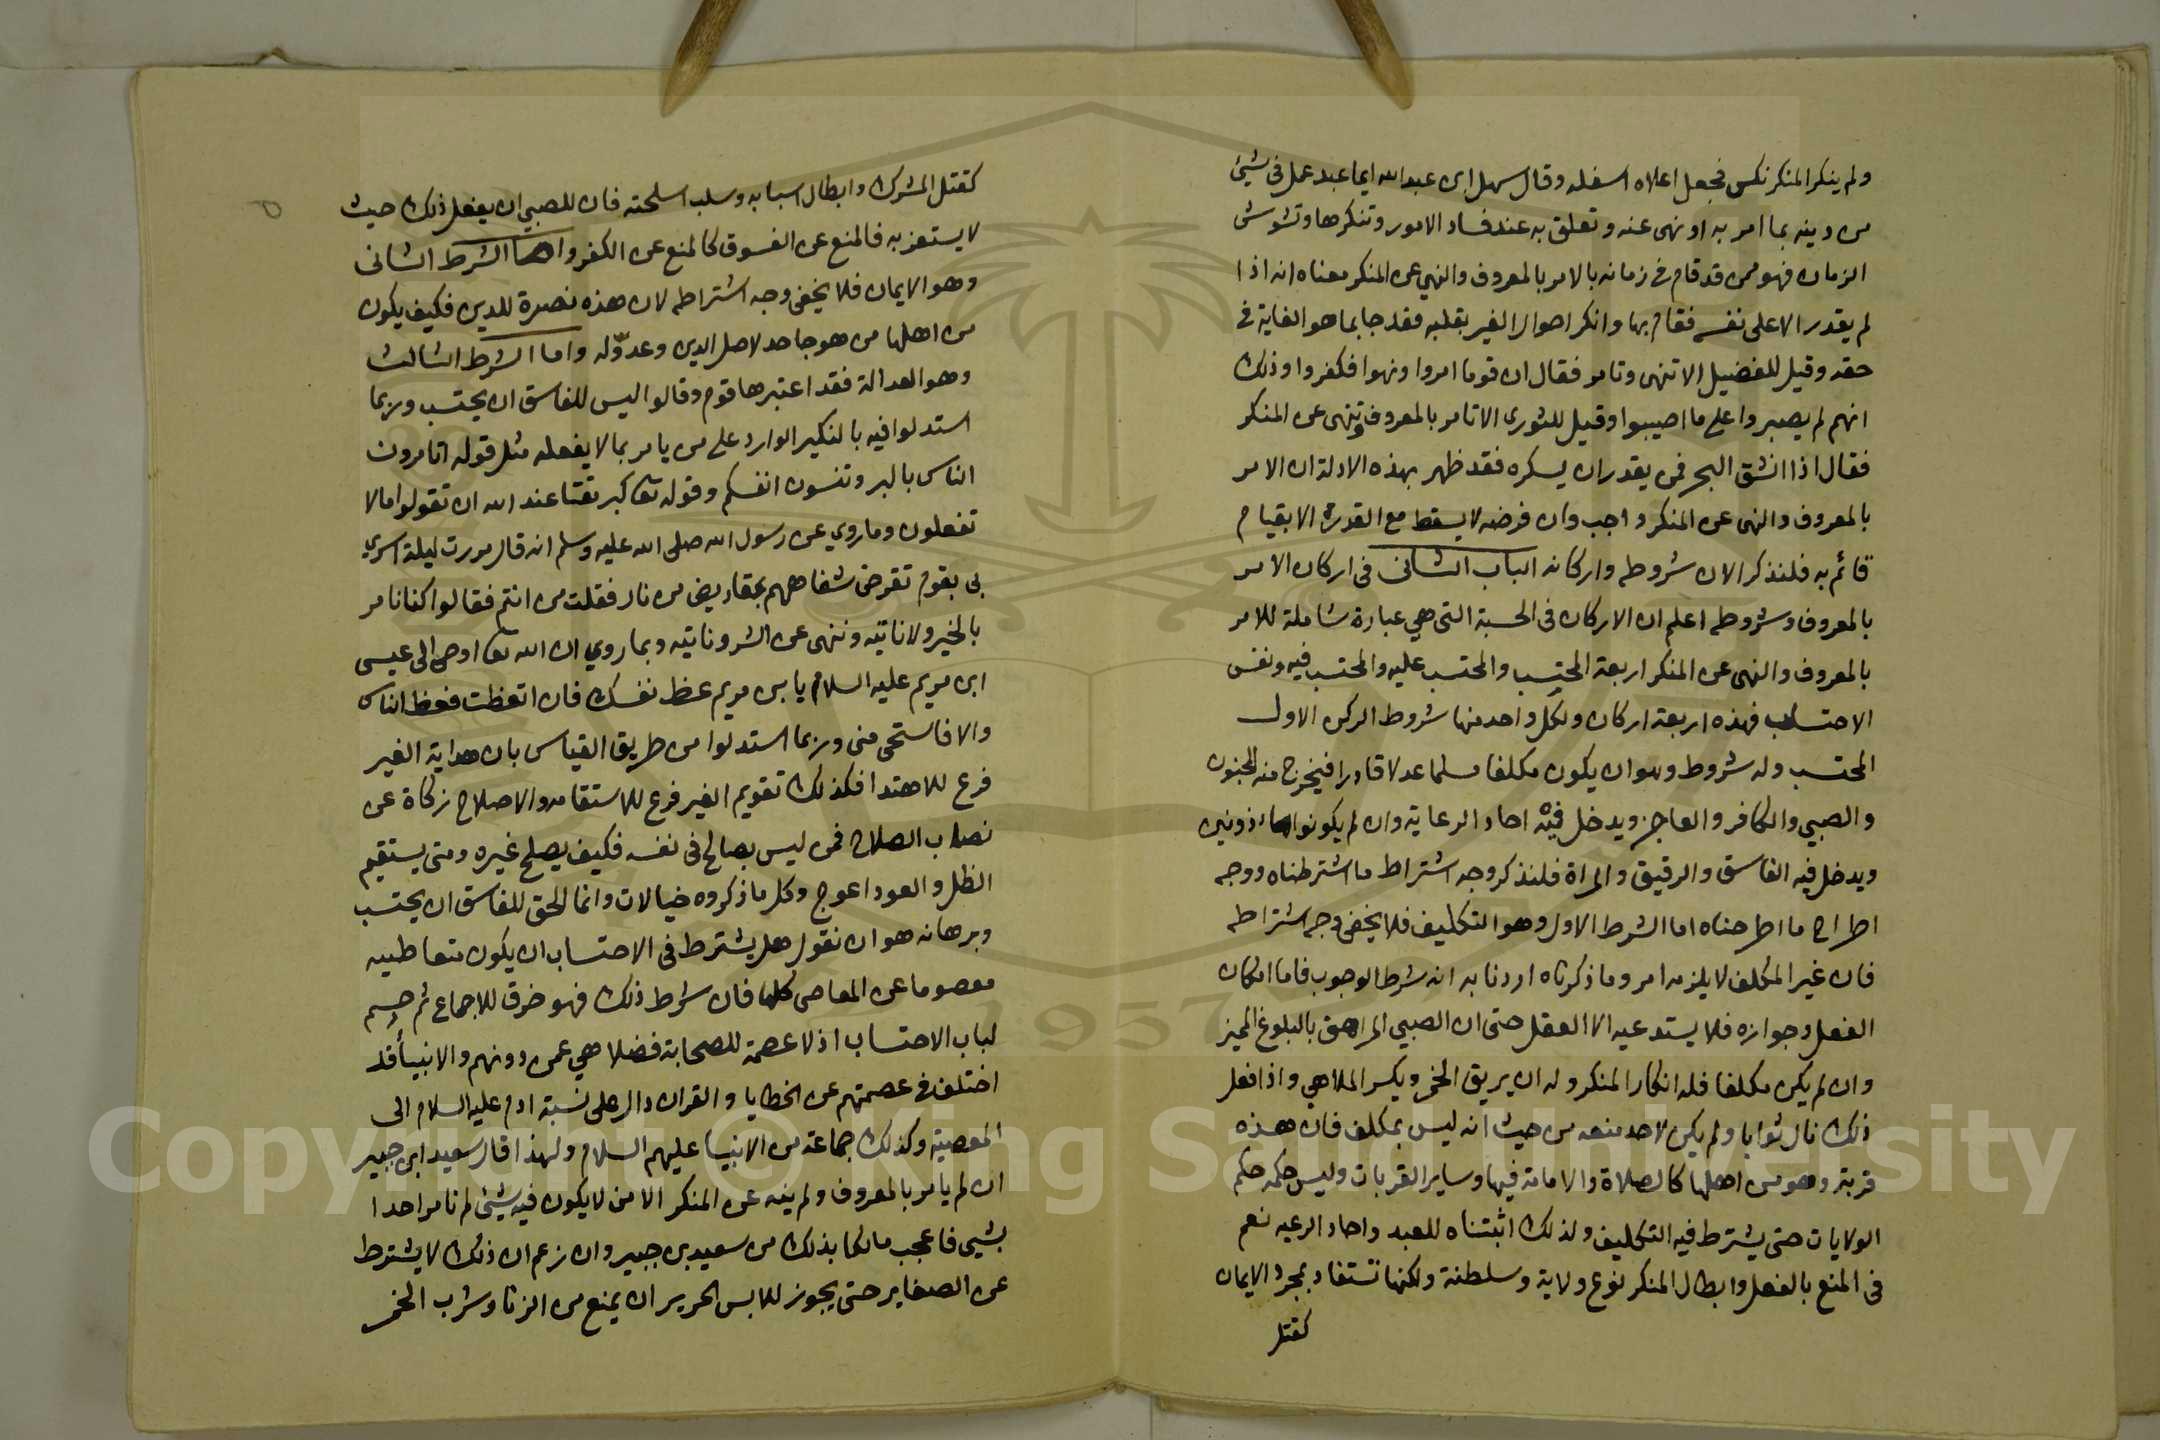 ولم ينكر المنكر نكس فجعل اعلاه اسفله وقال سهل ابن عبد الله ايما عبد عمل فى شيئ
من دينه بما امر به او نهى عنه وتعلق به عند فساد الامور وتنكرها وتشوش
الزمان فهو ممن قد قام فى زمانه بالامر بالمعروف والنهي عن المنكر معناه انه اذا
لم يقدر الا على نفسه فقام بها وانكر احوال الغير بقلبه فقد جا بما هو الغاية فى
حقه وقيل للفضيل الا تنهى وتامر فقال ان قوما امروا ونهوا فكفروا وذلك
انهم لم يصبروا على ما اصيبوا وقيل للثورى الا تامر بالمعروف وتنهى عن المنكر
فقال اذا انشق البحر فمن يقدر ان يسكره فقد ظهر بهذه الادلة ان الامر
بالمعروف والنهى عن المنكر واجب وان فرضه لا يسقط مع القدرة الا بقيام
قائم به فلنذكر الان شروطه واركانه الباب الثانى فى اركان الامر
بالمعروف وشروطه اعلم ان الاركان فى الحسبة التى هي عبارة شاملة للامر
بالمعروف والنهى عن المنكر اربعة المحتسب والمحتسب عليه والمحتسب فيه ونفس
الاحتساب فهذه اربعة اركان ولكل واحد منها شروط الركن الاول
المحتسب وله شروط وهو ان يكون مكلفا مسلما عدلا قادرا فيخرج منه المجنون
والصبي والكافر والعاجز ويدخل فيه احاد الرعاية وان لم يكونوا ماذونين
ويدخل فيه الفاسق والرقيق والمراة فلنذكر وجه اشتراط ما اشترطناه ووجه
اطراح ما اطرحناه اما الشرط الاول وهو التكليف فلا يخفى وجه اشتراطه
فان غير المكلف لا يلزمه امر وما ذكرناه اردنا به انه شرط الوجوب فاما امكان
الفعل وجوازه فلا يستدعيه الا العقل حتى ان الصبي المراهق بالبلوغ المميز
وان لم يكن مكلفا فله انكار المنكر وله ان يريق الخمر ويكسر الملاهي واذا فعل
ذلك نال ثوابا ولم يكن لاحد منعه من حيث انه ليس بمكلف فان هذه
قربة وهو من اهلها كالصلاة والامامة فيها وساير القربات وليس حكمه حكم
الولايات حتى يشترط فيه التكليف ولذلك اثبتناه للعبد واحاد الرعيه نعم
فى المنع بالفعل وابطال المنكر نوع ولاية وسلطنة ولكنها تستفاد بمجرد الايمان
كقتل
كقتل المشرك وابطال اسبابه وسلب اسلحته فان للصبي ان يفعل ذلك حيث
لا يستضر به فالمنع عن الفسوق كالمنع عن الكفر واما الشرط الثانى
وهو الايمان فلا يخفى وجه اشتراطه لان هذه نصرة للدين فكيف يكون
من اهلها من هو جاحد لاصل الدين وعدوّ له واما الشرط الثالث
وهو العدالة فقد اعتبرها قوم وقالوا ليس للفاسق ان يحتسب وربما
استدلوا فيه بالنكير الوارد على من يامر بما لا يفعله مثل قوله اتامرون
الناس بالبر وتنسون انفسكم وقوله تعا كبر مقتا عند الله ان تقولوا ما لا
تفعلون وما روي عن رسول الله صلى الله عليه وسلم انه قال مررت ليلة اسري
بى بقوم تقرض شفاههم بمقاريض من نار فقلت من انتم فقالوا كنا نامر
بالخير ولا ناتيه وننهى عن الشر وناتيه وبما روي ان الله تعا اوحى الى عيسى
ابن مريم عليه السلام يا بن مريم عظ نفسك فان اتعظت فعظ الناس
والا فاستحى منى وربما استدلوا من طريق القياس بان هداية الغير
فرع للاهتدا فكذلك تقويم الغير فرع للاستقامه والاصلاح زكاة عن
نصاب الصلاح فمن ليس بصالح فى نفسه فكيف يصلح غيره ومتى يستقيم
الظل والعود اعوج وكل ما ذكروه خيالات وانما الحق للفاسق ان يحتسب
وبرهانه هو ان نقول هل يشترط فى الاحتساب ان يكون متعاطيه
معصوما عن المعاصى كلها فان شرط ذلك فهو خرق للاجماع ثم حسم
لباب الاحتساب اذ لا عصمة للصحابة فضلا هي عمن دونهم والانبيأ قد
اختلف فى عصمتهم عن الخطايا والقران دال على نسبة ادم عليه السلام الى
المعصية وكذلك جماعة من الانبيا عليهم السلام ولهذا قال سعيد ابن جبير
ان لم يامر بالمعروف ولم ينه عن المنكر الا من لا يكون فيه شيئ لم نامر احدا
بشيى فاعجب مالكا بذلك من سعيد بن جبير وان زعم ان ذلك لا يشترط
عن الصغاير حتى يجوز للابس الحرير ان يمنع من الزنا وشرب الخمر
Copyright © King Saud University
1957